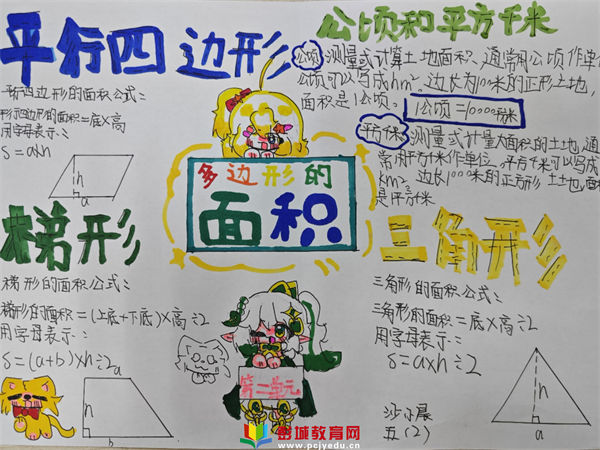 平行四边形
平行四边形的面积公式：
平行四边形的面积=底×高
用字母表示：
S=a×h
h
a
公顷和平方千米
公顷 测量或计算土地面积，通常用公顷作单位
公顷可以写成hm²，边长为100米的正方形土地，
面积是1公顷。 1公顷=10000平方米
平方千米 测量或计量大面积的土地，通
常用平方千米作单位，平方千米可以写成
km²，边长1000米的正方形土地，面积
是1平方千米
多边形的
面积
梯形
梯形的面积公式：
梯形的面积=(上底+下底)×高÷2
用字母表示：
S=(a+b)×h÷2
a
h
b
第二单元
三角形
三角形的面积公式：
三角形的面积=底×高÷2
用字母表示：
S=a×h÷2
h
a
五(2)
教育网
www.pcjyedu.cn